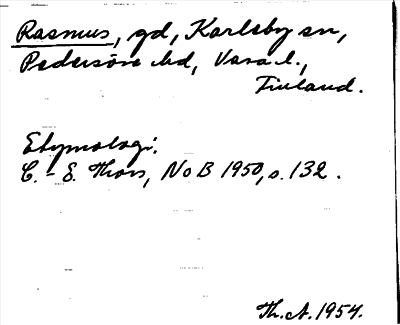 Rasmus, gd, Karleby sn,
Pedersöre hd, Vasa l.,
Finland.
Etymologi.
C.-E. Thors, NoB 1950, s. 132.
Th. A. 1954.